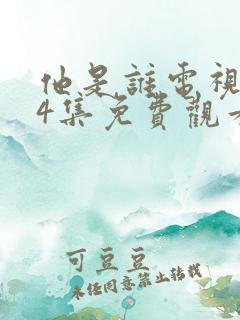 他是誰電視
4集免費觀看
可豆豆
未经同意禁止转载